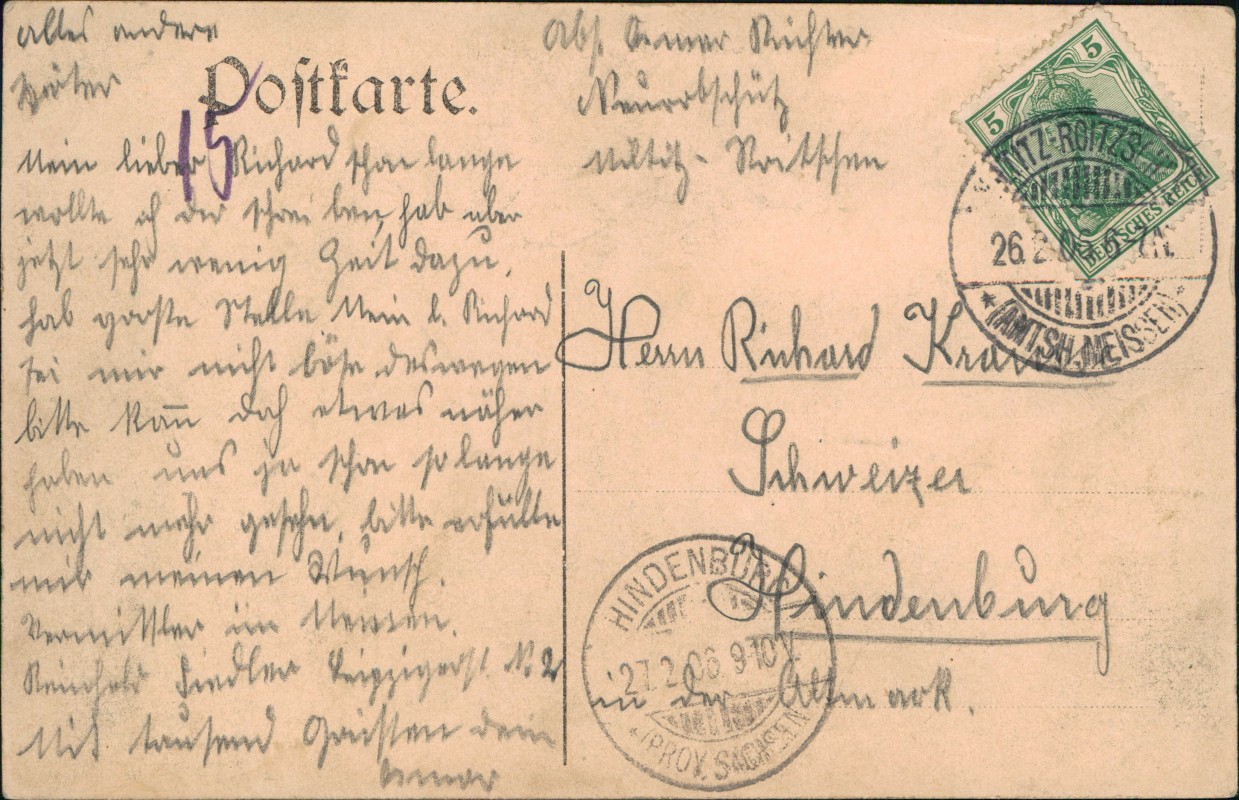 alles andere
später
Postkarte.
15
Mein lieber Richard schon lange
wollte ich dir schreiben, hab aber
jetzt sehr wenig Zeit dazu,
hab große Stelle Mein l. Richard
sei mir nicht böse deswegen
bitte kom̄ doch etwas näher
haben uns ja schon so lange
nicht mehr gesehn, bitte erfülle
mir meinen Wunsch.
Vermittler in Meissen.
Reinhold Fiedler Leipzigerst. N. 2
Mit tausend Grüssen dein
Abs. Richter
Neurobschütz
Miltitz-Roitschen
5
5
DEUTSCHES REICH
MILTITZ-ROITZSCHEN
26.2.06
(AMTSH. MEISSEN)
Herrn Richard
Schweizer
Hindenburg
in der Altmark.
HINDENBURG
27.2.06.9-10V.
(PROV. SACHSEN)